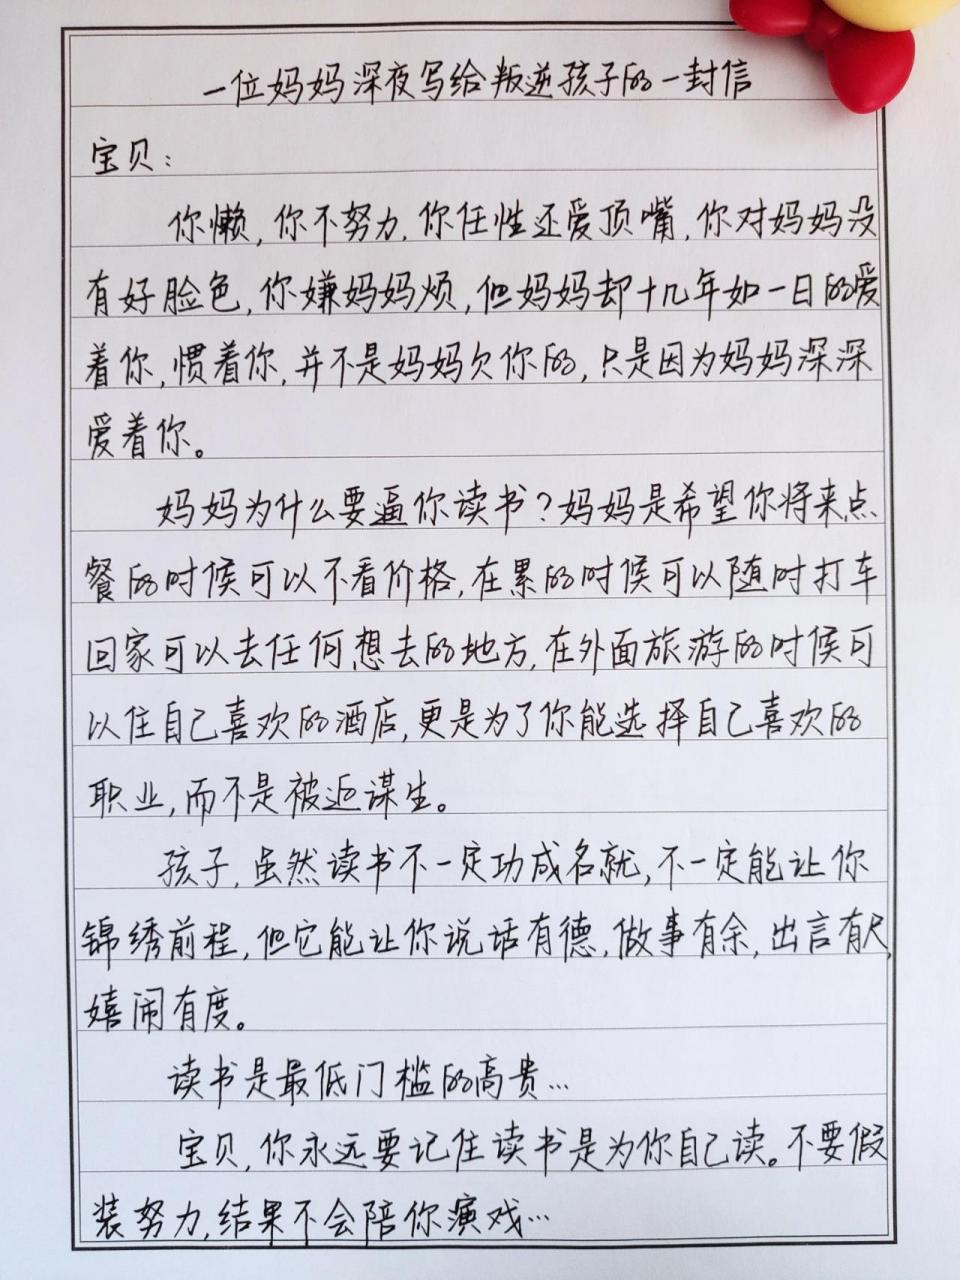 一位妈妈深夜写给叛逆孩子的一封信
宝贝：
你懒，你不努力，你任性还爱顶嘴，你对妈妈没
有好脸色，你嫌妈妈烦，但妈妈却十几年如一日的爱
着你，惯着你，并不是妈妈欠你的，只是因为妈妈深深
爱着你。
妈妈为什么要逼你读书？妈妈是希望你将来点
餐的时候可以不看价格，在累的时候可以随时打车
回家可以去任何想去的地方，在外面旅游的时候可
以住自己喜欢的酒店，更是为了你能选择自己喜欢的
职业，而不是被迫谋生。
孩子，虽然读书不一定功成名就，不一定能让你
锦绣前程，但它能让你说话有德，做事有余，出言有尺，
嬉闹有度。
读书是最低门槛的高贵…
宝贝，你永远要记住读书是为你自己读。不要假
装努力，结果不会陪你演戏…